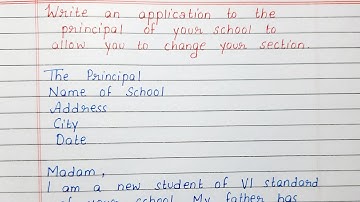 Write an application to the
principal of your school to
allow you to change your section.
The Principal
Name of School
Address
City
Date
Madam,
I am a new student of VI standard
of your school. My father has